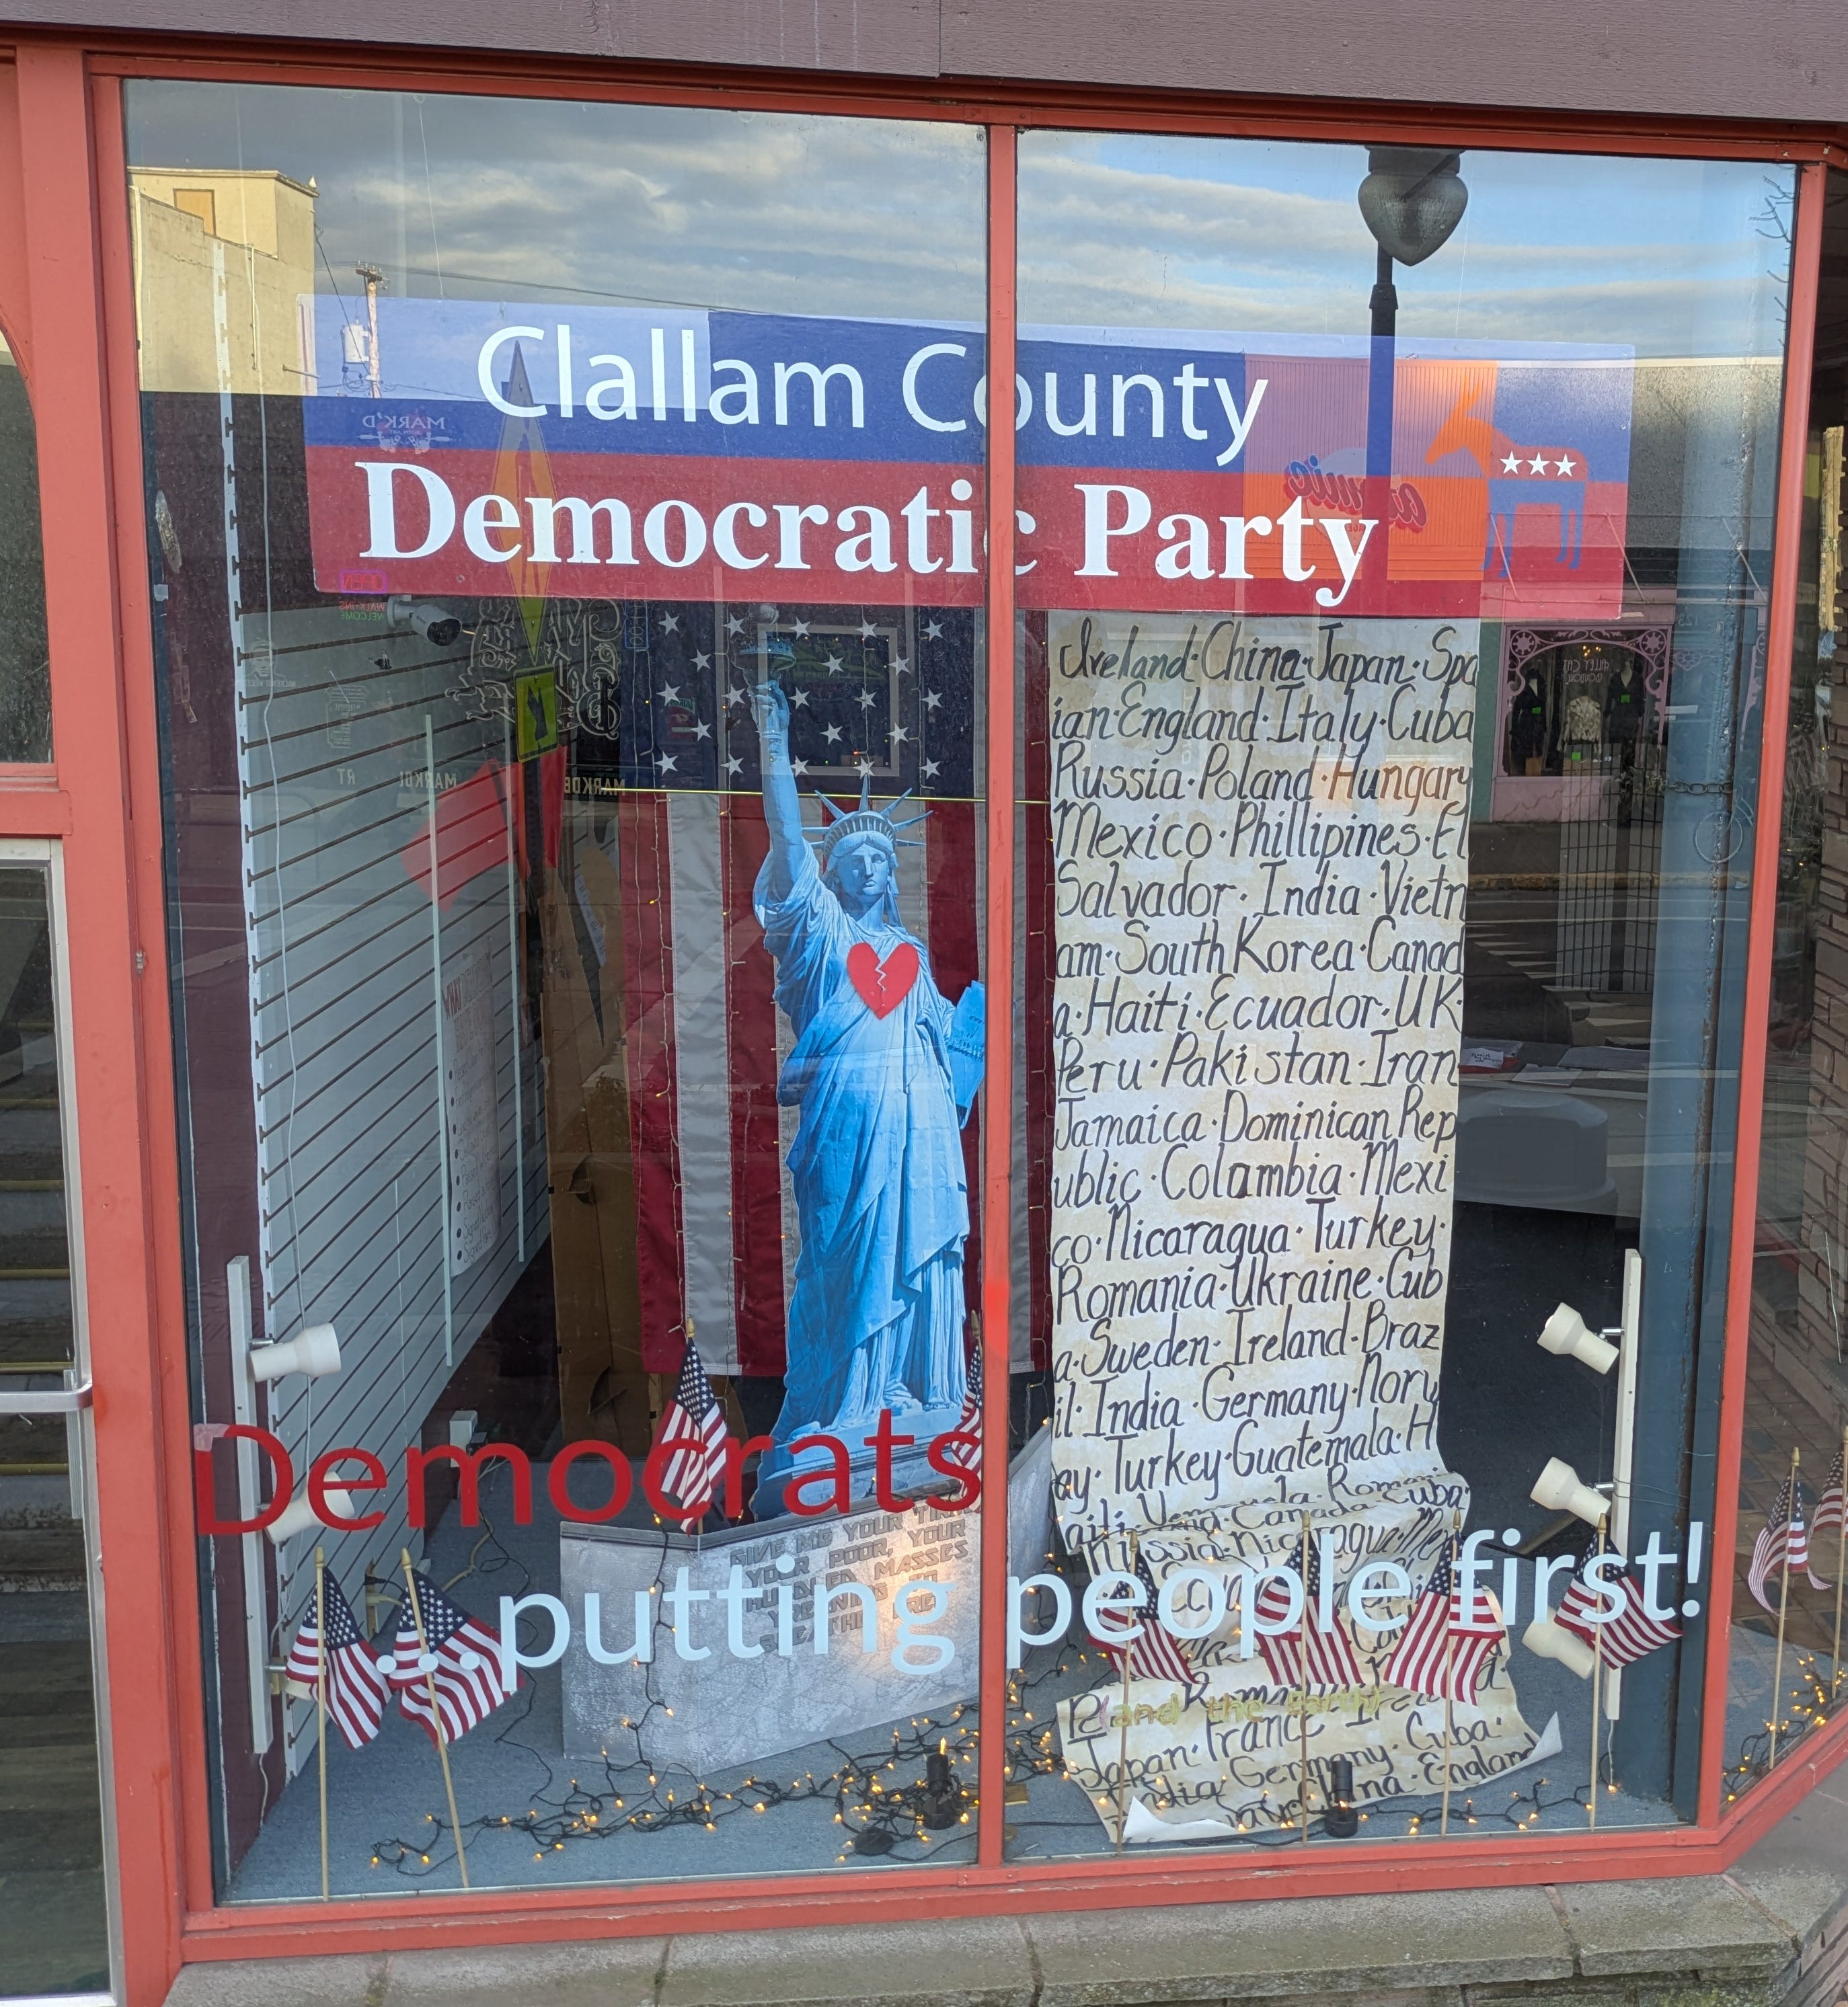 Clallam County
Democratic Party
Ireland·China·Japan·Spa
ian·England·Italy·Cuba
Russia·Poland·Hungary
Mexico·Phillipines·El
Salvador·India·Vietn
am·South Korea·Canad
a·Haiti·Ecuador·UK·
Peru·Pakistan·Iran
Jamaica·Dominican Rep
ublic·Colombia·Mexi
co·Nicaragua·Turkey·
Romania·Ukraine·Cub
a·Sweden·Ireland·Braz
il·India·Germany·Norw
ay·Turkey·Guatemala·H
aiti·Venezuela·Romani
Canada·Cuba·
Russia·Nicaragua·Me
Democrats
GIVE ME YOUR TIRED
YOUR POOR, YOUR
HUDDLED MASSES
YEARNING TO
BREATHE FREE
...putting people first!
and the Earth!
Japan·France
India·Germany·Cuba·
China·England